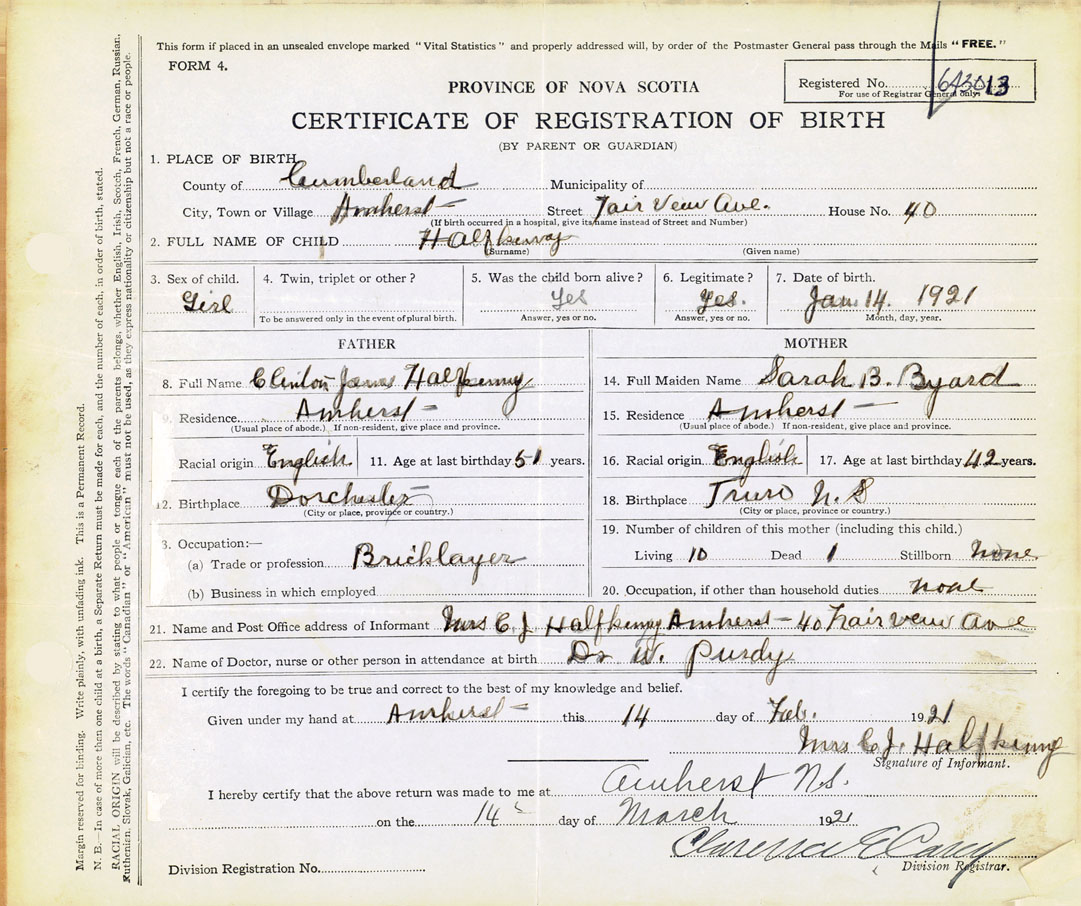 This form if placed in an unsealed envelope marked "Vital Statistics" and properly addressed will, by order of the Postmaster General pass through the Mails "FREE."
FORM 4.
PROVINCE OF NOVA SCOTIA
Registered No. 13
For use of Registrar General only.
CERTIFICATE OF REGISTRATION OF BIRTH
(BY PARENT OR GUARDIAN)
1. PLACE OF BIRTH
County of Cumberland Municipality of
City, Town or Village Amherst Street Fair Veiw Ave. House No. 40
(If birth occurred in a hospital, give its name instead of Street and Number)
2. FULL NAME OF CHILD Halfkenny
(Surname) (Given name)
3. Sex of child. 4. Twin, triplet or other? 5. Was the child born alive? 6. Legitimate? 7. Date of birth.
Girl Yes Yes. Jan. 14. 1921
To be answered only in the event of plural birth. Answer, yes or no. Answer, yes or no. Month, day, year.
FATHER MOTHER
8. Full Name Clinton James Halfkenny 14. Full Maiden Name Sarah B. Byard
9. Residence Amherst 15. Residence Amherst
(Usual place of abode.) If non-resident, give place and province. (Usual place of abode.) If non-resident, give place and province.
Racial origin English 11. Age at last birthday 51 years. 16. Racial origin English 17. Age at last birthday 42 years.
12. Birthplace Dorchester 18. Birthplace Truro N.S
(City or place, province or country.) (City or place, province or country.)
19. Number of children of this mother (including this child.)
3. Occupation:—
(a) Trade or profession Bricklayer Living 10 Dead 1 Stillborn None
(b) Business in which employed 20. Occupation, if other than household duties None
21. Name and Post Office address of Informant Mrs C. J. Halfkenny Amherst - 40 Fair veiw Ave
22. Name of Doctor, nurse or other person in attendance at birth Dr W. Purdy
I certify the foregoing to be true and correct to the best of my knowledge and belief.
Given under my hand at Amherst this 14 day of Feb. 1921
Mrs C. J. Halfkenny
Signature of Informant.
I hereby certify that the above return was made to me at Amherst N.S.
on the 14 day of March 1921
Clarence E Casey
Division Registrar.
Division Registration No.
Margin reserved for binding. Write plainly, with unfading ink. This is a Permanent Record.
N. B.—In case of more then one child at a birth, a Separate Return must be made for each, and the number of each, in order of birth, stated.
RACIAL ORIGIN will be described by stating to what people or tongue each of the parents belongs, whether English, Irish, Scotch, French, German, Russian,
Ruthenian, Slovak, Galician, etc. The words "Canadian" or "American" must not be used, as they express nationality or citizenship but not a race or people.